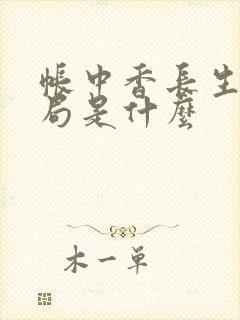 帳中香長生
局是什麼
木一单